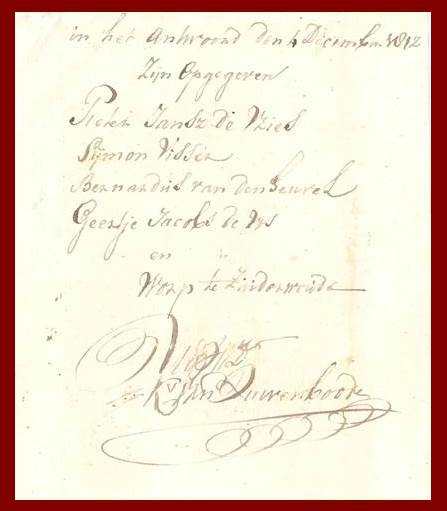 in het Antwoord den 4 December 1812
Zijn Opgegeven
Pieter Jansz de Vries
Sijmon Visser
Bernardus van den heuvel
Geertje Jacobs de Vrs
en
Worp te Zuiderwoude
K: van Duivenboode